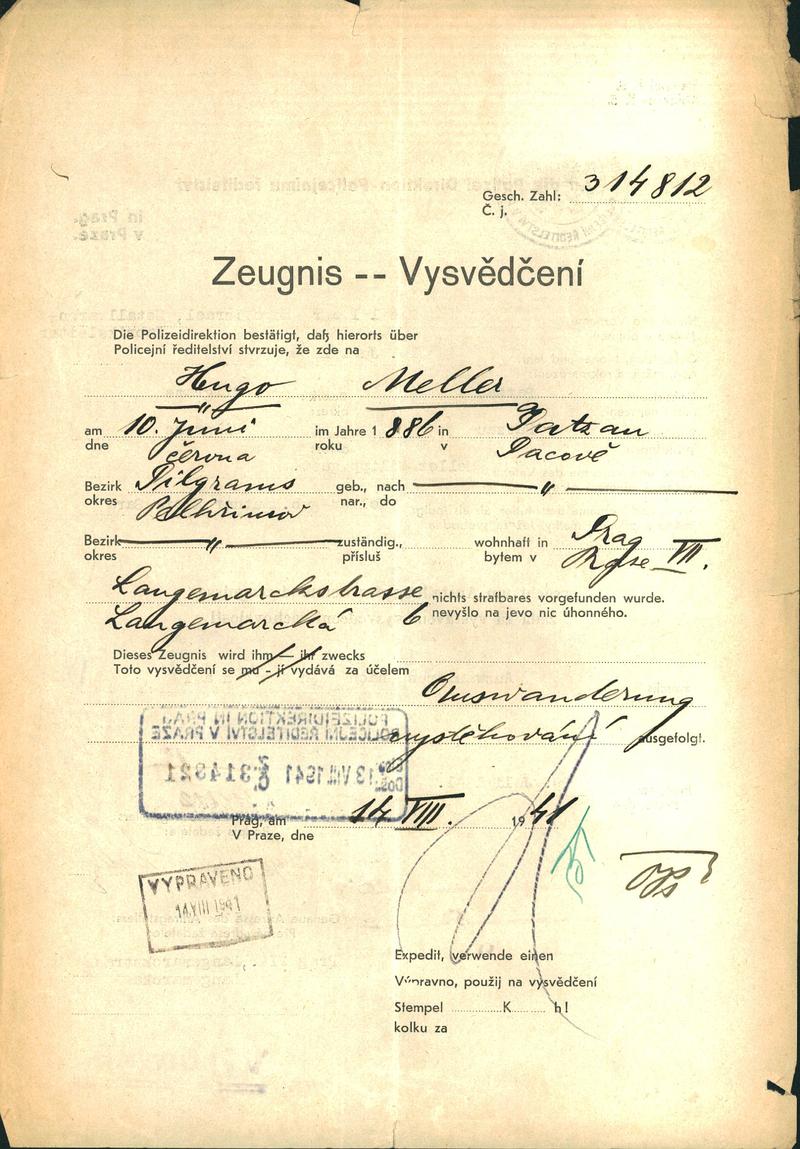 Gesch. Zahl: 314812
Č. j.
Zeugnis -- Vysvědčení
Die Polizeidirektion bestätigt, daß hierorts über
Policejní ředitelství stvrzuje, že zde na
Hugo Meller
am 10. Juni im Jahre 1 886 in Patzau
dne června roku v Pacově
Bezirk Pilgrams geb., nach — " —
okres Pelhřimov nar., do
Bezirk — " — zuständig., wohnhaft in Prag
okres přísluš bytem v Praze VII.
Langemarckstrasse nichts strafbares vorgefunden wurde.
Langemarcká 6 nevyšlo na jevo nic úhonného.
Dieses Zeugnis wird ihm - ihr zwecks
Toto vysvědčení se mu - jí vydává za účelem
Auswanderung
vystěhování ausgefolgt.
POLIZEIDIREKTION IN PRAG
POLICEJNÍ ŘEDITELSTVÍ V PRAZE
13 VIII 1941 314921
Prag, am 14 VIII. 19 41
V Praze, dne
VYPRAVENO
14 VIII 1941
Expedit, verwende einen
Výpravno, použij na vysvědčení
Stempel K h!
kolku za